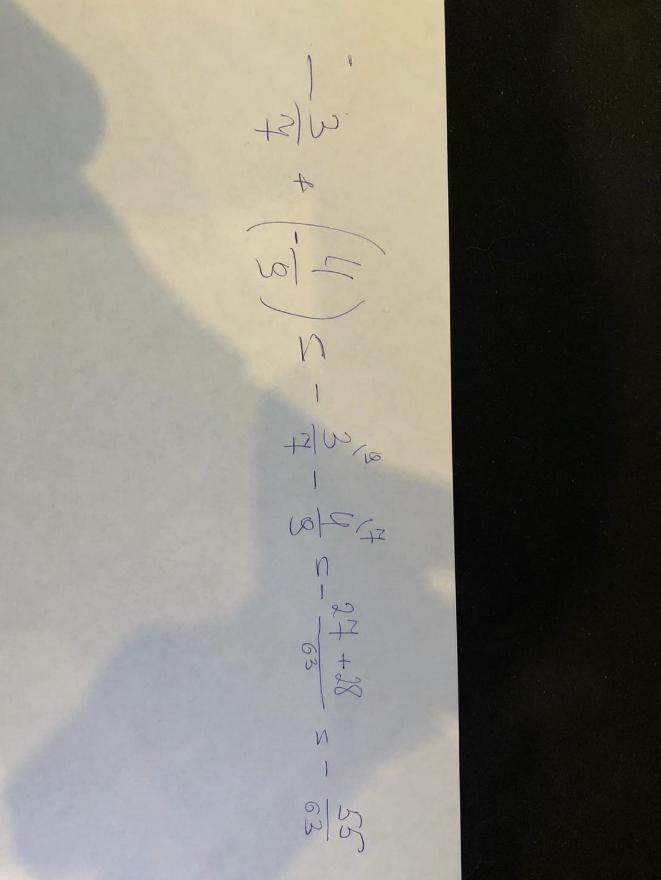 - 3/7 + (- 4/9) = - 3/7 \9 - 4/9 \7 = - 27 + 28/63 = - 55/63